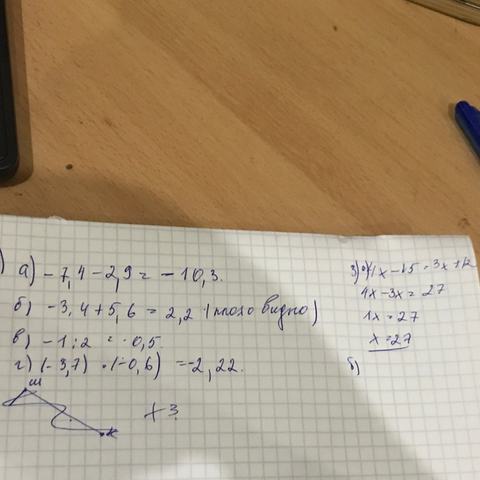 ) а) -7,4 - 2,9 = -10,3.
б) -3,4 + 5,6 = 2,2 (плохо видно)
в) -1 : 2 = -0,5.
г) (-3,7) · (-0,6) = -2,22.
м
к
3) а) 4x - 15 = 3x + 12
4x - 3x = 27
1x = 27
x = 27
б)